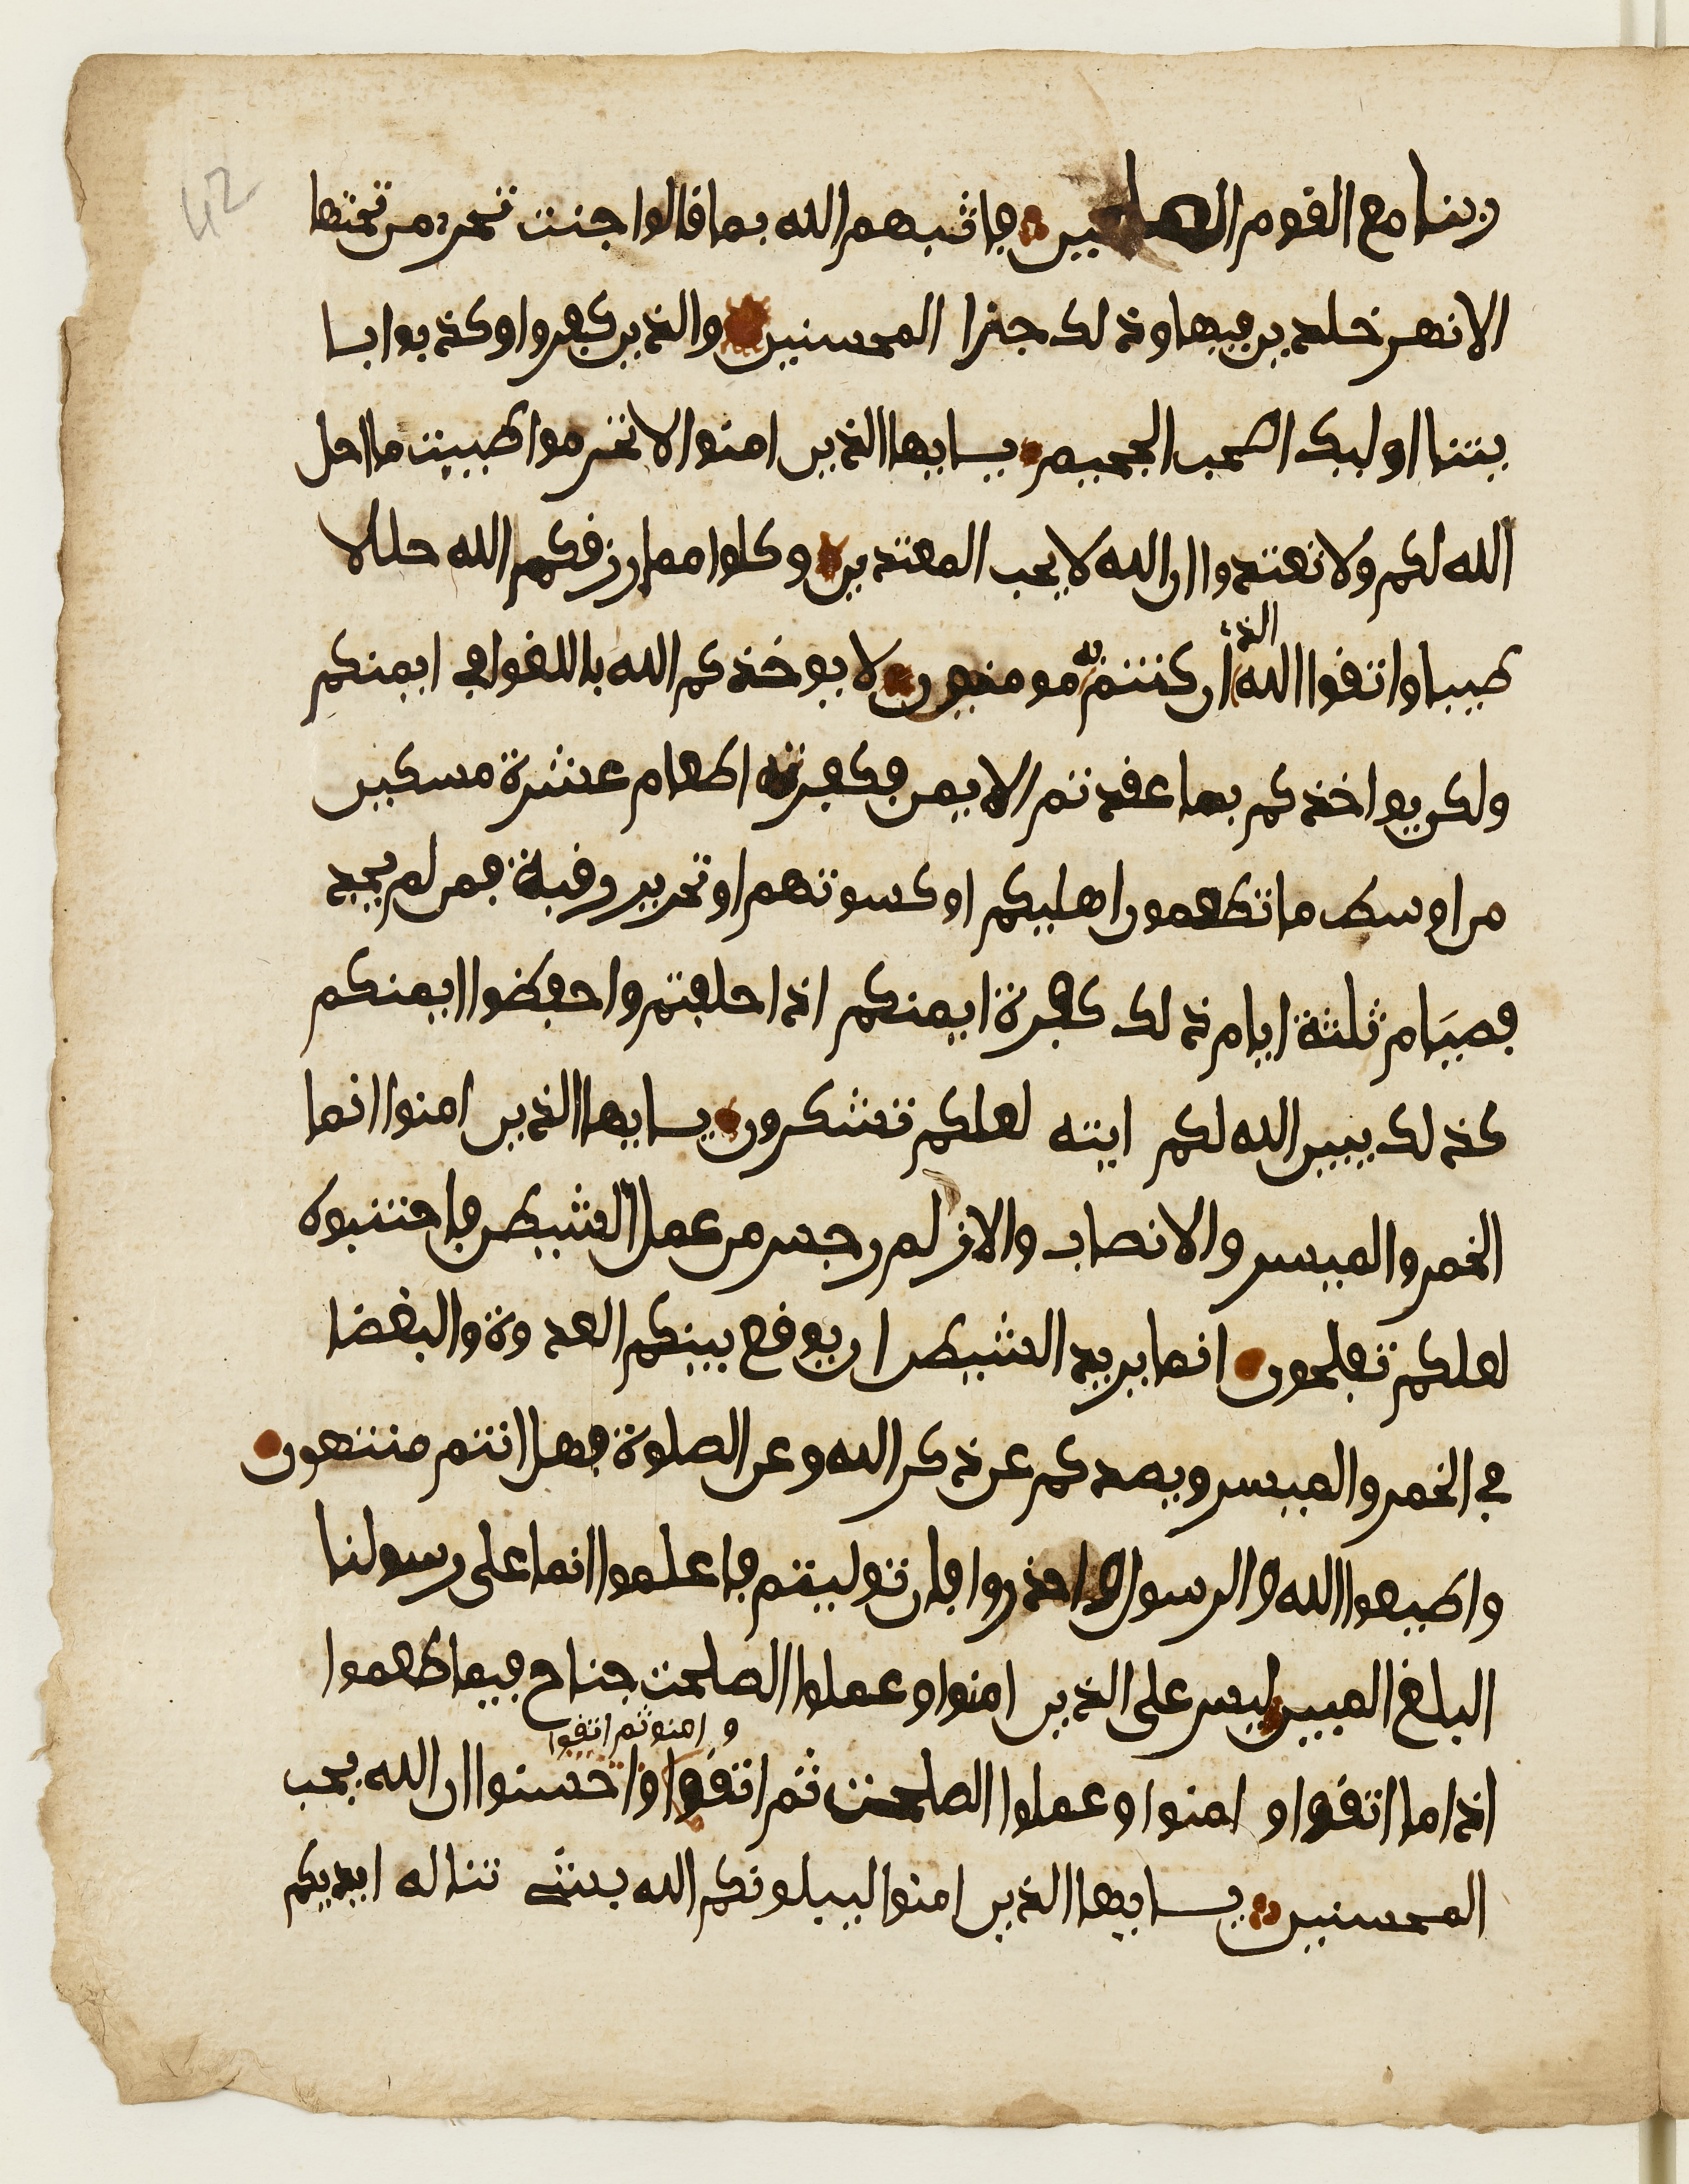 ربنا مع القوم الصلحين فاثبهم الله بما قالوا جنت تجر من تحتها
الانهر خلدين فيها وذلك جزا المحسنين والذين كفروا وكذبوا با
يتنا اوليك اصحب الجحيم يايها الذين امنوا لا تحرموا طيبت ما احل
الله لكم ولا تعتدوا ان الله لا يحب المعتدين وكلوا مما رزقكم الله حللا
طيبا واتقوا الله الذ ان كنتم به مومنون لا يوخذكم الله باللغو في ايمنكم
ولكن يواخذكم بما عقدتم الايمن فكفرته اطعام عشرة مسكين
من اوسط ما تطعمون اهليكم او كسوتهم او تحرير رقبة فمن لم يجد
فصيام ثلثة ايام ذلك كفرة ايمنكم اذا حلفتم واحفظوا ايمنكم
كذلك يبين الله لكم ايته لعلكم تشكرون يايها الذين امنوا انما
الخمر والميسر والانصاب والازلم رجس من عمل الشيطن فاجتنبوه
لعلكم تفلحون انما يريد الشيطن ان يوقع بينكم العدوة والبغضا
في الخمر والميسر ويصدكم عن ذكر الله وعن الصلوة فهل انتم منتهون
واطيعوا الله والرسول واحذروا فان توليتم فاعلموا انما على رسولنا
البلغ المبين ليس على الذين امنوا وعملوا الصلحت جناح فيما طعموا
و امنو ثم اتقوا
اذا ما اتقوا و امنوا وعملوا الصلحت ثم اتقوا واحسنوا ان الله يحب
المحسنين يايها الذين امنوا ليبلونكم الله بشي تناله ايديكم
42